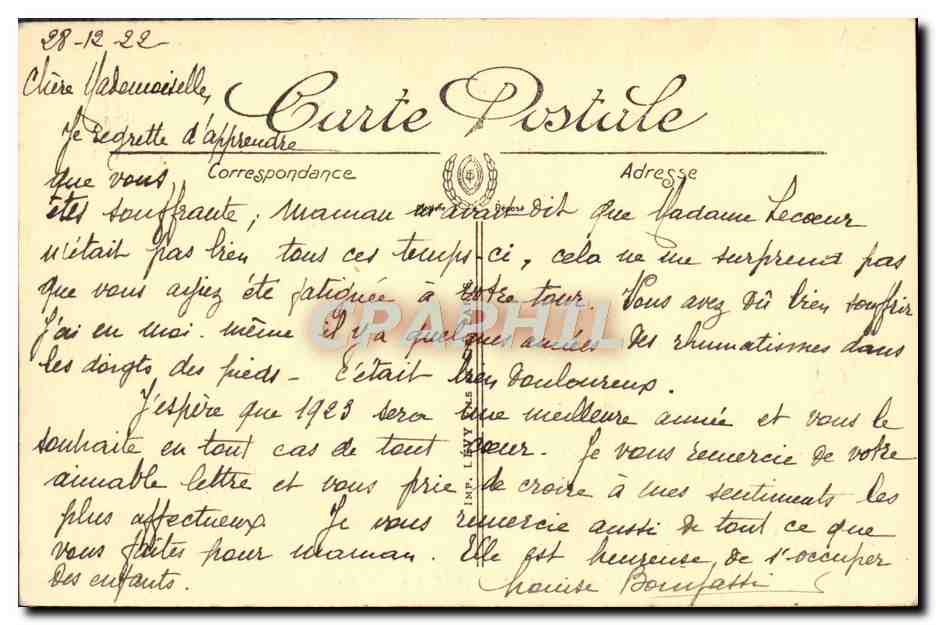 28-12-22
Chère Mademoiselle,
Carte Postale
Je regrette d'apprendre
que vous
Correspondance
Adresse
êtes souffrante, maman m'avait dit que Madame Lecœur
n'était pas bien tous ces temps-ci, cela ne me surprend pas
que vous ayiez été fatiguée à votre tour. Vous avez dû bien souffrir
j'ai eu moi-même il y a quelques années des rhumatismes dans
les doigts des pieds - C'était bien douloureux.
J'espère que 1923 sera une meilleure année et vous le
souhaite en tout cas de tout cœur. Je vous remercie de votre
aimable lettre et vous prie de croire à mes sentiments les
plus affectueux Je vous remercie aussi de tout ce que
vous faites pour maman. Elle est heureuse de s'occuper
des enfants.
Louise
IMP. LÉVY
CPAPHIL